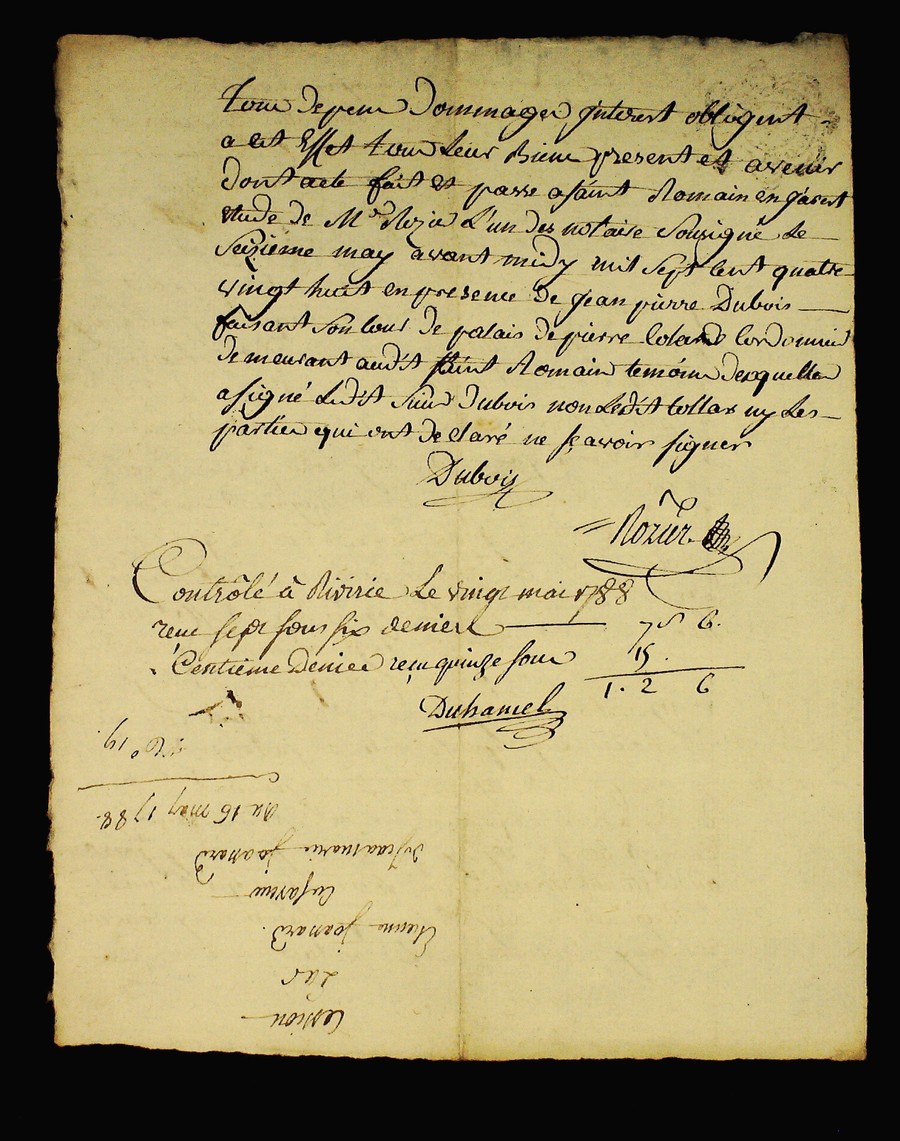 tous depens Dommages Jnterest obligent
a cet Effet tous Leurs Biens present et avenir
Dont acte fait et passe a saint Romain en jarest
etude de Me Rozier L'un des notaire Sousigné Le
Seizieme may avant midy mil Sept Cent quatre
vingt huit en presence de Jean pierre Dubois
faisant son cour de palais de pierre Colard Cordonnier
Demeurant audit saint Romain temoins desquelles
a signé Ledit Sieur Dubois non Ledit Collar ny Les
parties qui ont declaré ne sçavoir signer
Dubois
Rozier
Contrôlé à Rivirie Le vingt mai 1788
reçu sept sous six deniers 7 s 6.
Centieme Denier reçu quinze sous 15.
1. 2 6
Duhamel
Cession
par
Etienne Joanard.
En faveur
de Jeanmarie Joanard
Du 16 may 1788.
No 19